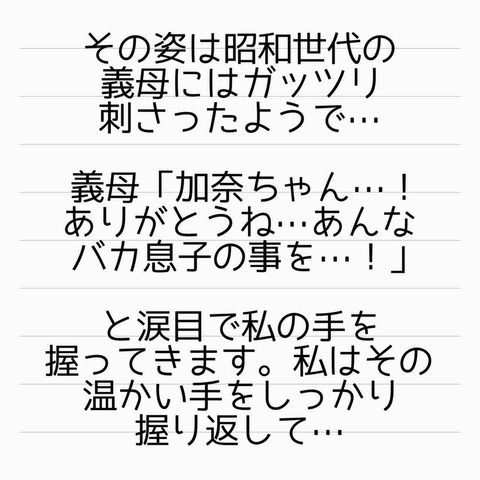 その姿は昭和世代の
義母にはガッツリ
刺さったようで…
義母「加奈ちゃん…！
ありがとうね…あんな
バカ息子の事を…！」
と涙目で私の手を
握ってきます。私はその
温かい手をしっかり
握り返して…